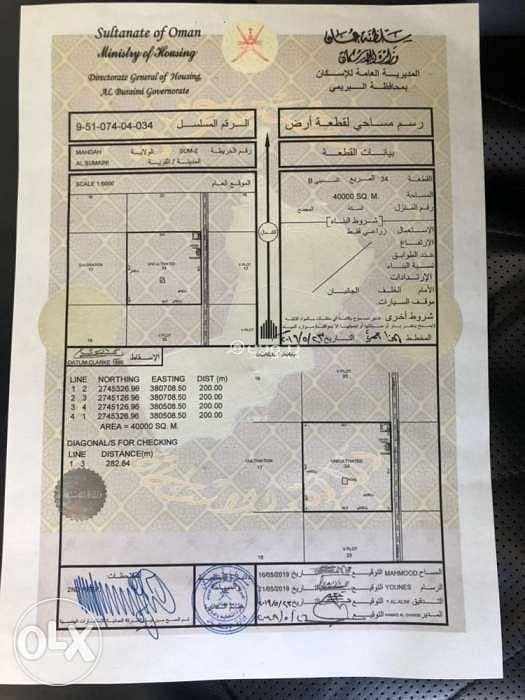 Sultanate of Oman
Ministry of Housing
Directorate General of Housing,
AL Buraimi Governorate
سلطنة عمان
وزارة الإسكان
المديرية العامة للإسكان
بمحافظة البريمي
9-51-074-04-034 الرقم المسلسل
رسم مساحي لقطعة أرض
MAHDAH الولاية SUM-2 رقم الخريطة
AL SUMAINI المدينة / القرية
بيانات القطعة
SCALE 1:6000 الموقع العام
القطعة 34 المربع B
المساحة 40000 SQ. M.
رقم المنزل السكة المجمع
[شروط البناء]
الإستعمال زراعي فقط
الإرتفاع
عدد الطوابق
نسبة البناء
الإرتدادات
الأمام الخلف الجانبان
موقف السيارات
شروط أخرى
المخطط التاريخ
شمال
V.PLOT
CULTIVATION
17
UNCULTIVATED
34
V.PLOT
الإسقاط
DATUM-CLARKE 1880
LINE NORTHING EASTING DIST (m)
1 2 2745326.96 380708.50 200.00
2 3 2745126.96 380708.50 200.00
3 4 2745126.96 380508.50 200.00
4 1 2745326.96 380508.50 200.00
AREA = 40000 SQ. M.
DIAGONAL/S FOR CHECKING
LINE DISTANCE(m)
1 3 282.84
V.PLOT
CULTIVATION
17
UNCULTIVATED
34
V.PLOT
المساح MAHMOOD التوقيع التاريخ 16/05/2019
الرسام YOUNES التوقيع التاريخ 21/05/2019
التدقيق التوقيع التاريخ
المدير التوقيع التاريخ
الملاحظات
OLX